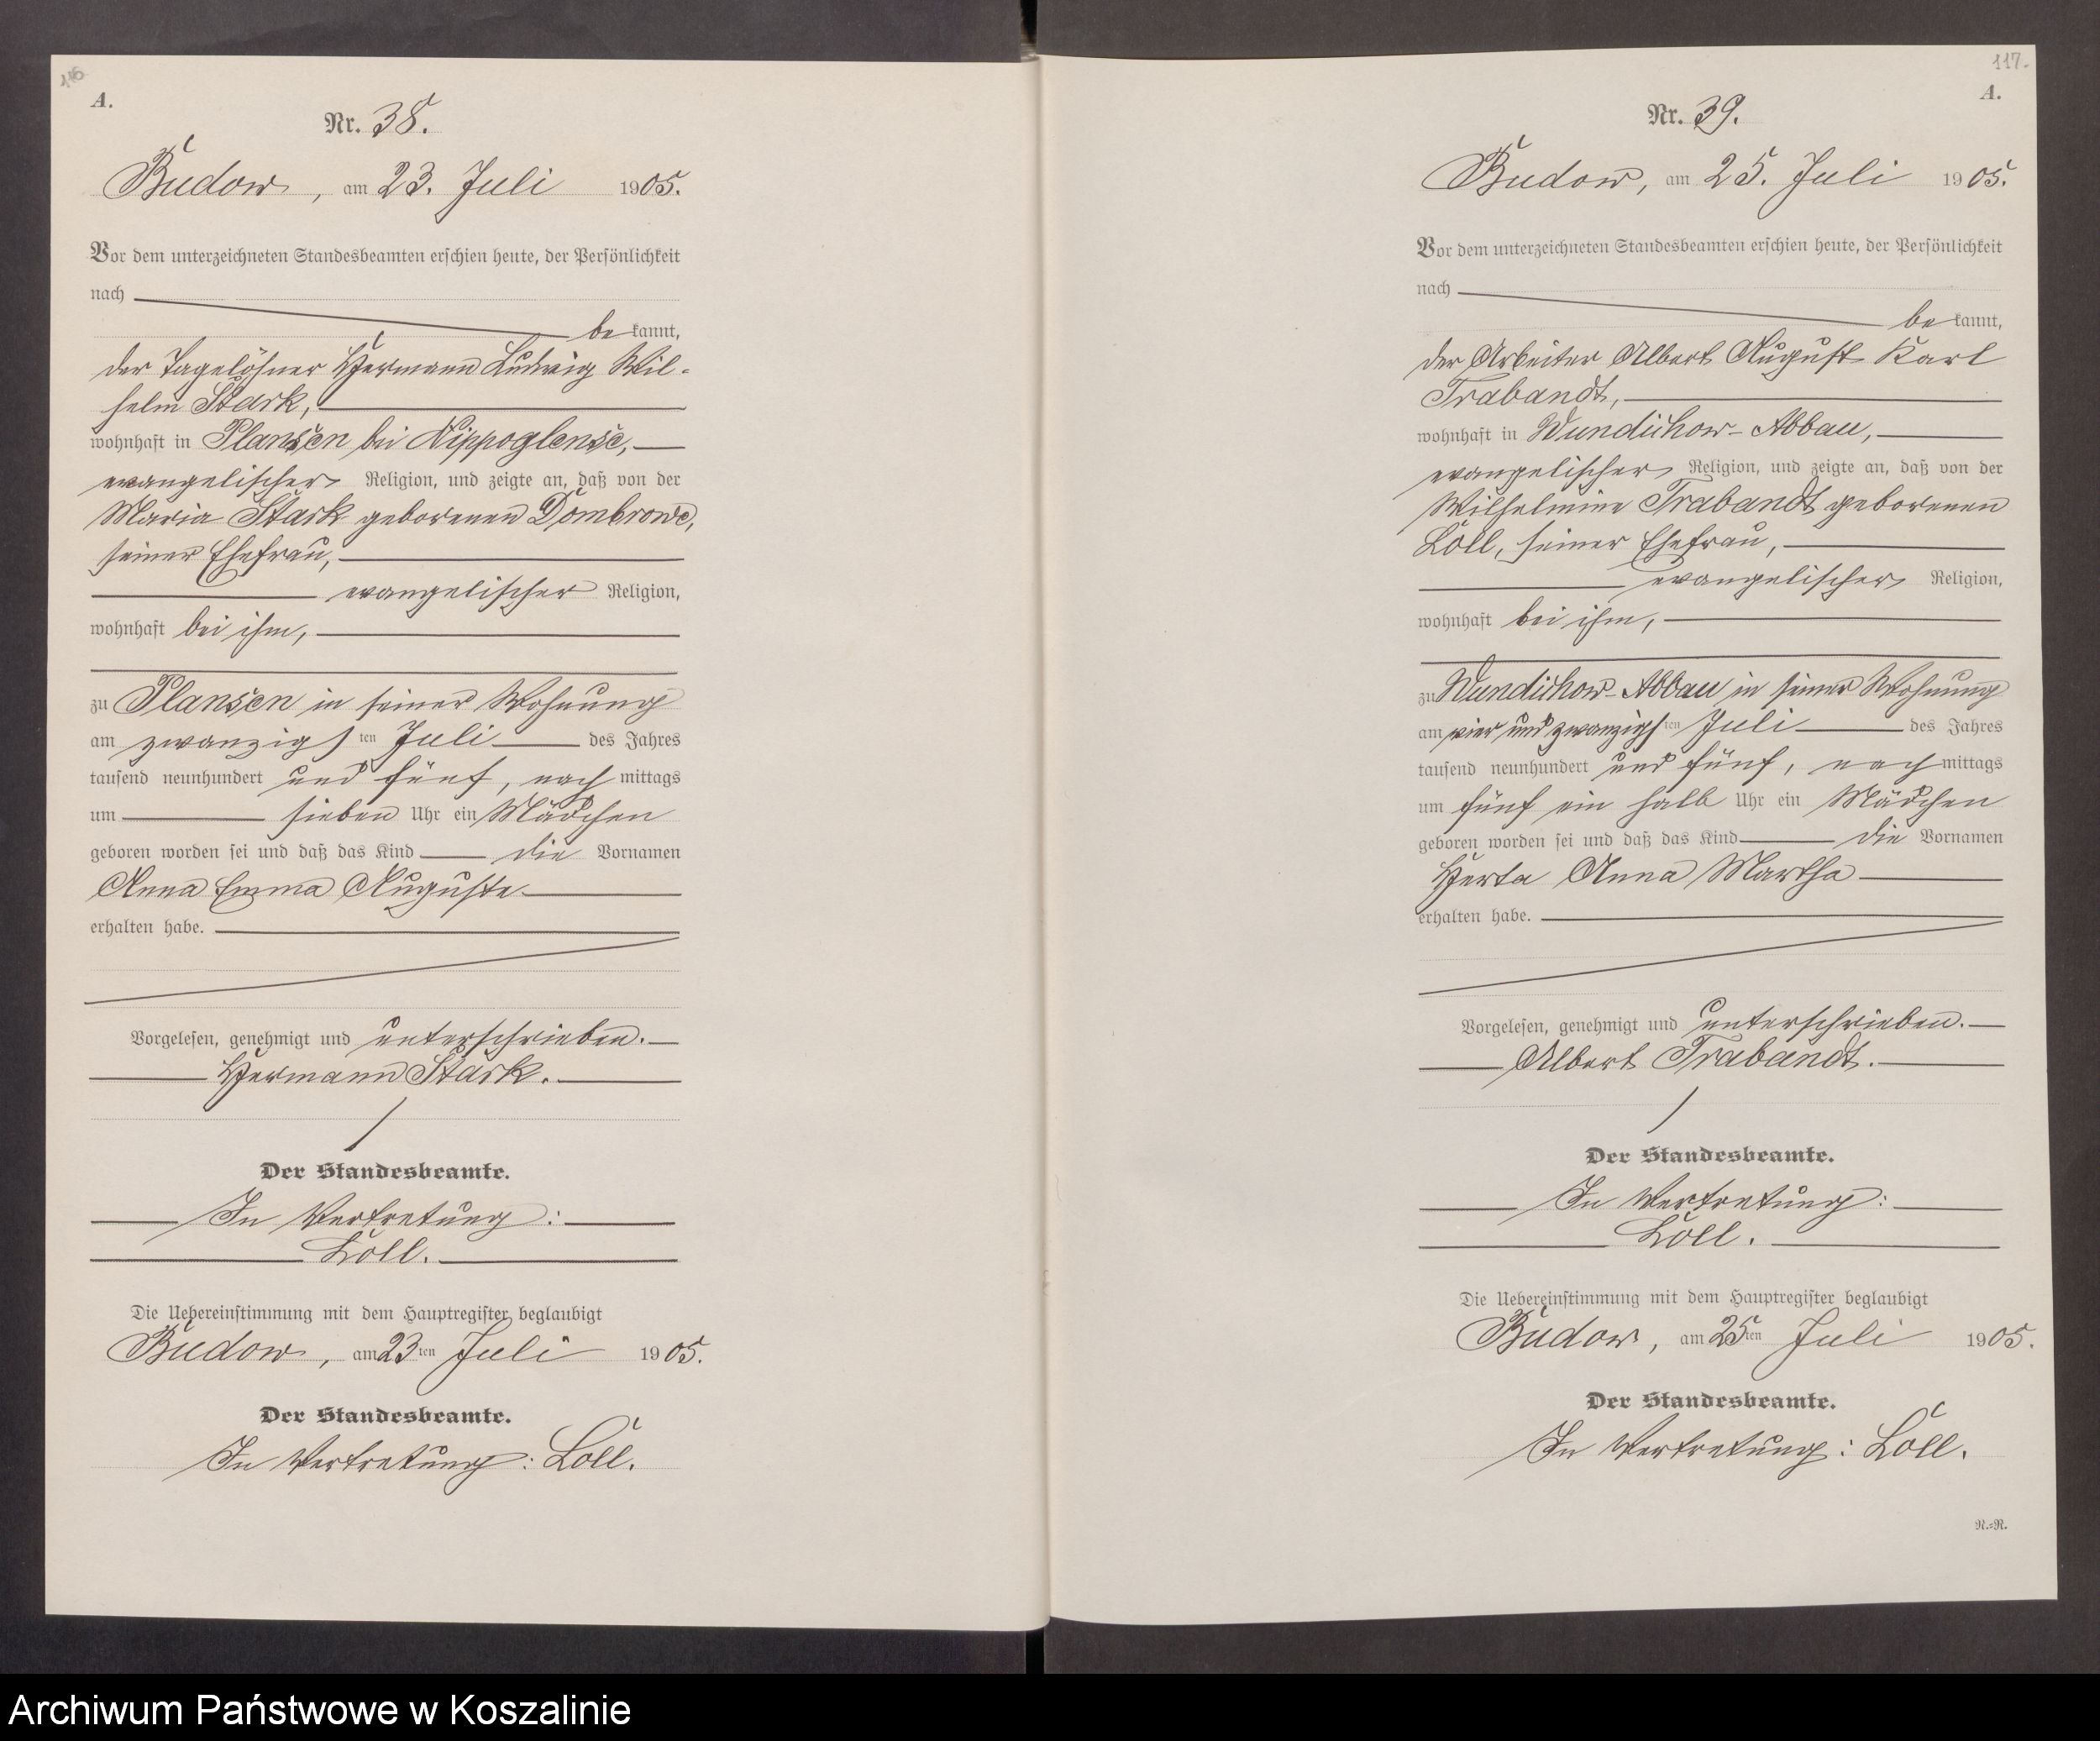 116
A.
Nr. 38.
Budow, am 23. Juli 1905.
Vor dem unterzeichneten Standesbeamten erschien heute, der Persönlichkeit
nach
be kannt,
der Tagelöhner Hermann Ludwig Wil-
helm Stark,
wohnhaft in Plansen bei Nippoglense,
evangelischer Religion, und zeigte an, daß von der
Maria Stark geborenen Dombrowe,
seiner Ehefrau,
evangelischer Religion,
wohnhaft bei ihm,
zu Plansen in seiner Wohnung
am zwanzigsten Juli des Jahres
tausend neunhundert und fünf, nach mittags
um sieben Uhr ein Mädchen
geboren worden sei und daß das Kind die Vornamen
Anna Emma Auguste
erhalten habe.
Vorgelesen, genehmigt und unterschrieben.
Hermann Stark.
Der Standesbeamte.
In Vertretung:
Löll.
Die Uebereinstimmung mit dem Hauptregister beglaubigt
Budow, am 23ten Juli 1905.
Der Standesbeamte.
In Vertretung: Löll.
117.
A.
Nr. 39.
Budow, am 25. Juli 1905.
Vor dem unterzeichneten Standesbeamten erschien heute, der Persönlichkeit
nach
be kannt,
der Arbeiter Albert August Karl
Trabandt,
wohnhaft in Wundichow-Abbau,
evangelischer Religion, und zeigte an, daß von der
Wilhelmine Trabandt geborenen
Löll, seiner Ehefrau,
evangelischer Religion,
wohnhaft bei ihm,
zu Wundichow-Abbau in seiner Wohnung
am vier und zwanzigsten Juli des Jahres
tausend neunhundert und fünf, nach mittags
um fünf ein halb Uhr ein Mädchen
geboren worden sei und daß das Kind die Vornamen
Herta Anna Martha
erhalten habe.
Vorgelesen, genehmigt und unterschrieben.
Albert Trabandt.
Der Standesbeamte.
In Vertretung:
Löll.
Die Uebereinstimmung mit dem Hauptregister beglaubigt
Budow, am 25ten Juli 1905.
Der Standesbeamte.
In Vertretung: Löll.
N.=R.
Archiwum Państwowe w Koszalinie